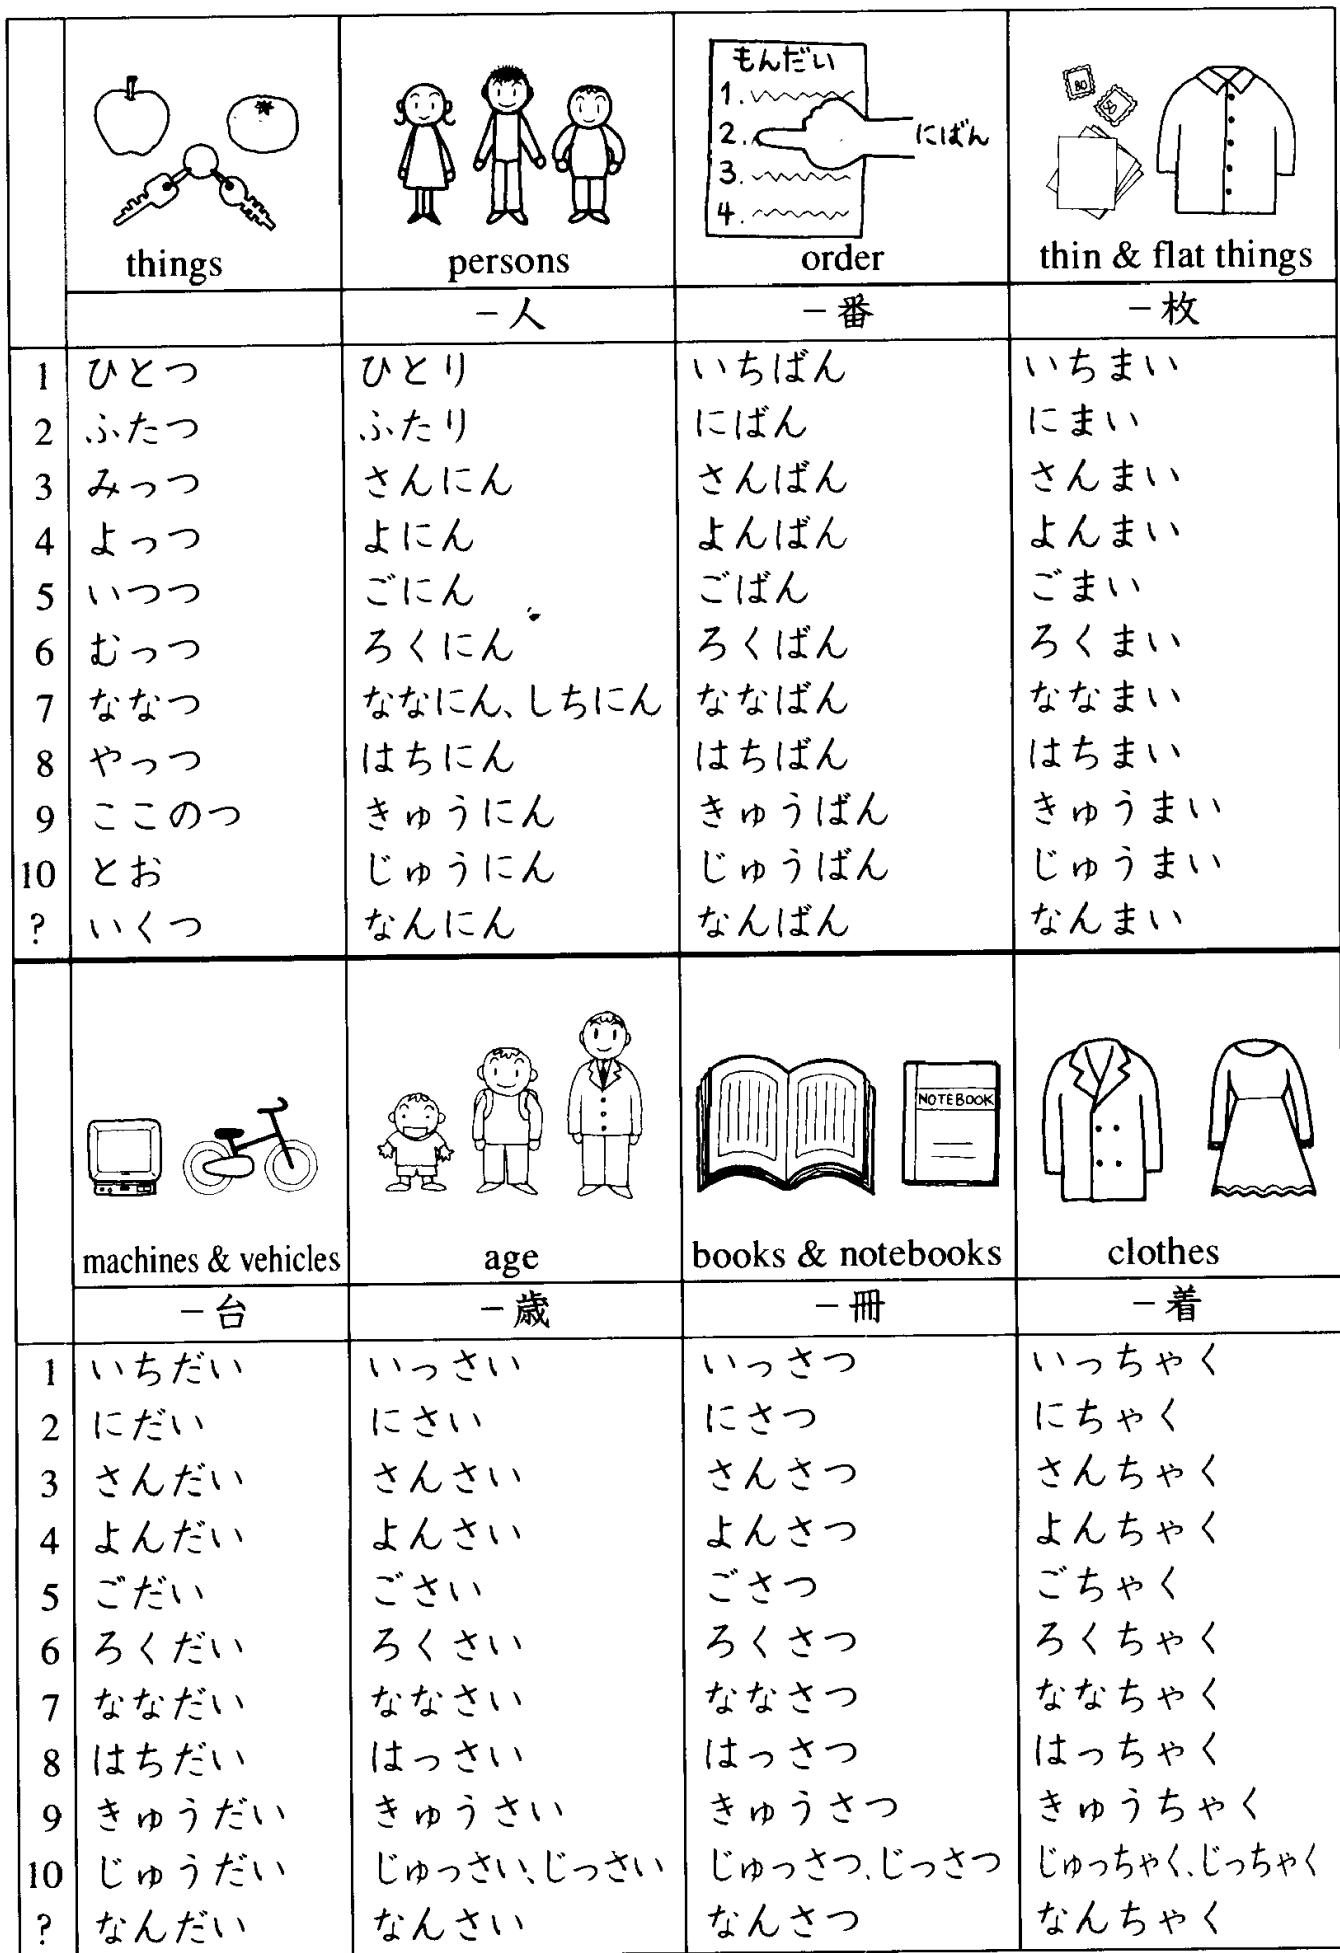 もんだい
1.
2.
にばん
3.
4.
BO
things persons order thin & flat things
－人 －番 －枚
1 ひとつ ひとり いちばん いちまい
2 ふたつ ふたり にばん にまい
3 みっつ さんにん さんばん さんまい
4 よっつ よにん よんばん よんまい
5 いつつ ごにん ごばん ごまい
6 むっつ ろくにん ろくばん ろくまい
7 ななつ ななにん、しちにん ななばん ななまい
8 やっつ はちにん はちばん はちまい
9 ここのつ きゅうにん きゅうばん きゅうまい
10 とお じゅうにん じゅうばん じゅうまい
? いくつ なんにん なんばん なんまい
NOTEBOOK
machines & vehicles age books & notebooks clothes
－台 －歳 －冊 －着
1 いちだい いっさい いっさつ いっちゃく
2 にだい にさい にさつ にちゃく
3 さんだい さんさい さんさつ さんちゃく
4 よんだい よんさい よんさつ よんちゃく
5 ごだい ごさい ごさつ ごちゃく
6 ろくだい ろくさい ろくさつ ろくちゃく
7 ななだい ななさい ななさつ ななちゃく
8 はちだい はっさい はっさつ はっちゃく
9 きゅうだい きゅうさい きゅうさつ きゅうちゃく
10 じゅうだい じゅっさい、じっさい じゅっさつ、じっさつ じゅっちゃく、じっちゃく
? なんだい なんさい なんさつ なんちゃく